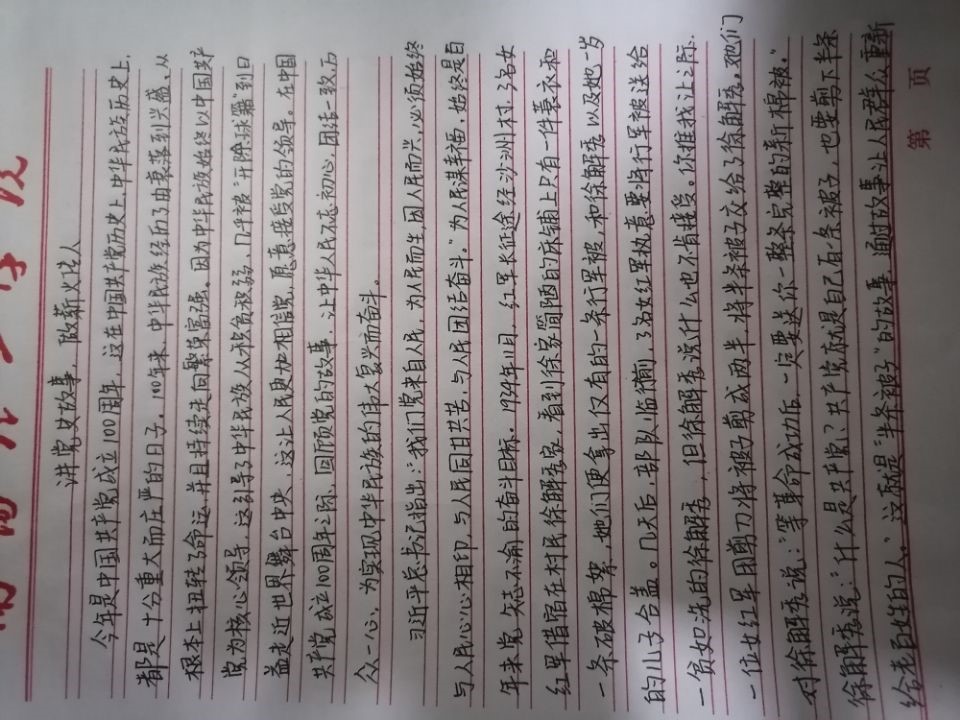 讲党史故事，做薪火传人
今年是中国共产党成立100周年，这在中国共产党历史上，中华民族历史上，
都是十分重大而庄严的日子。100年来，中华民族经历了由衰落到兴盛、从
根本上扭转了命运，并且持续走向繁荣富强。因为中华民族始终以中国共产
党为核心领导，这引导了中华民族从积贫积弱、几乎被“开除球籍”到日
益走近世界舞台中央，这让人民更加相信党，愿意接受党的领导。在中国
共产党成立100周年之际，回顾党的故事，让中华人民不忘初心，团结一致，万
众一心，为实现中华民族的伟大复兴而奋斗。
习近平总书记指出：“我们党来自人民，为人民而生，因人民而兴，必须始终
与人民心心相印、与人民同甘共苦、与人民团结奋斗。”为人民谋幸福，始终是百
年来党矢志不渝的奋斗目标。1934年11月，红军长征途经沙洲村，3名女
红军借宿在村民徐解秀家，看到徐家简陋的床铺上只有一件蓑衣和
一条破棉絮，她们便拿出仅有的一条行军被，和徐解秀以及她一岁
的儿子合盖。几天后，部队临行前，3名女红军执意要将行军被送给
一贫如洗的徐解秀，但徐解秀说什么也不肯接受。你推我让之际，
一位女红军用剪刀将被子剪成两半，将半条被子交给了徐解秀。她们
对徐解秀说：“等革命成功后，一定要送你一整条完整的新棉被。”
徐解秀说：“什么是共产党？共产党就是自己有一条被子，也要剪下半条
给老百姓的人。”这就是“半条被子”的故事，通过故事让人民群众重新
第 页